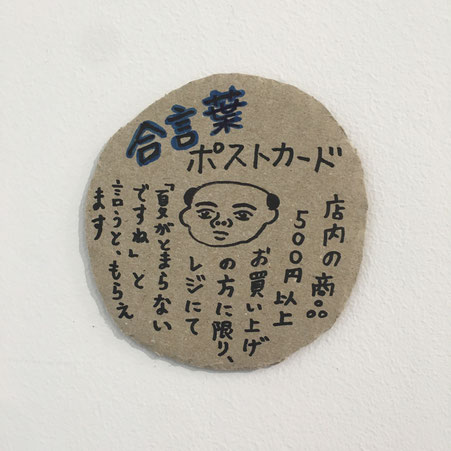 合言葉
ポストカード
店内の商品
500円以上
お買い上げ
の方に限り、
レジにて
「夏がとまらない
ですね」と
言うと、もらえ
ます